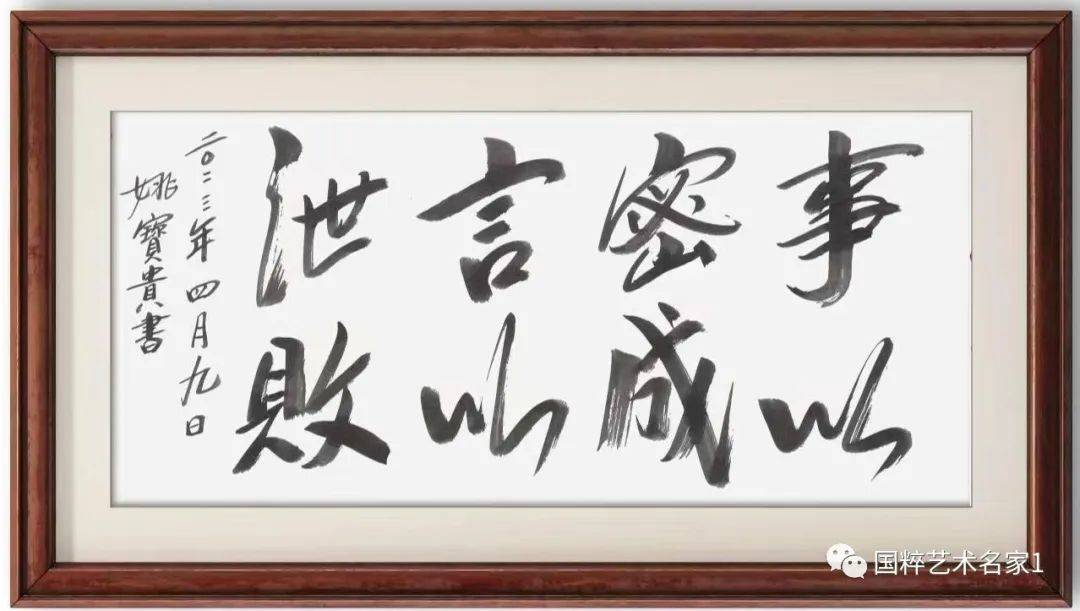 事以
密成
言以
泄敗
二〇二三年四月九日
姚寶貴書
国粹艺术名家1